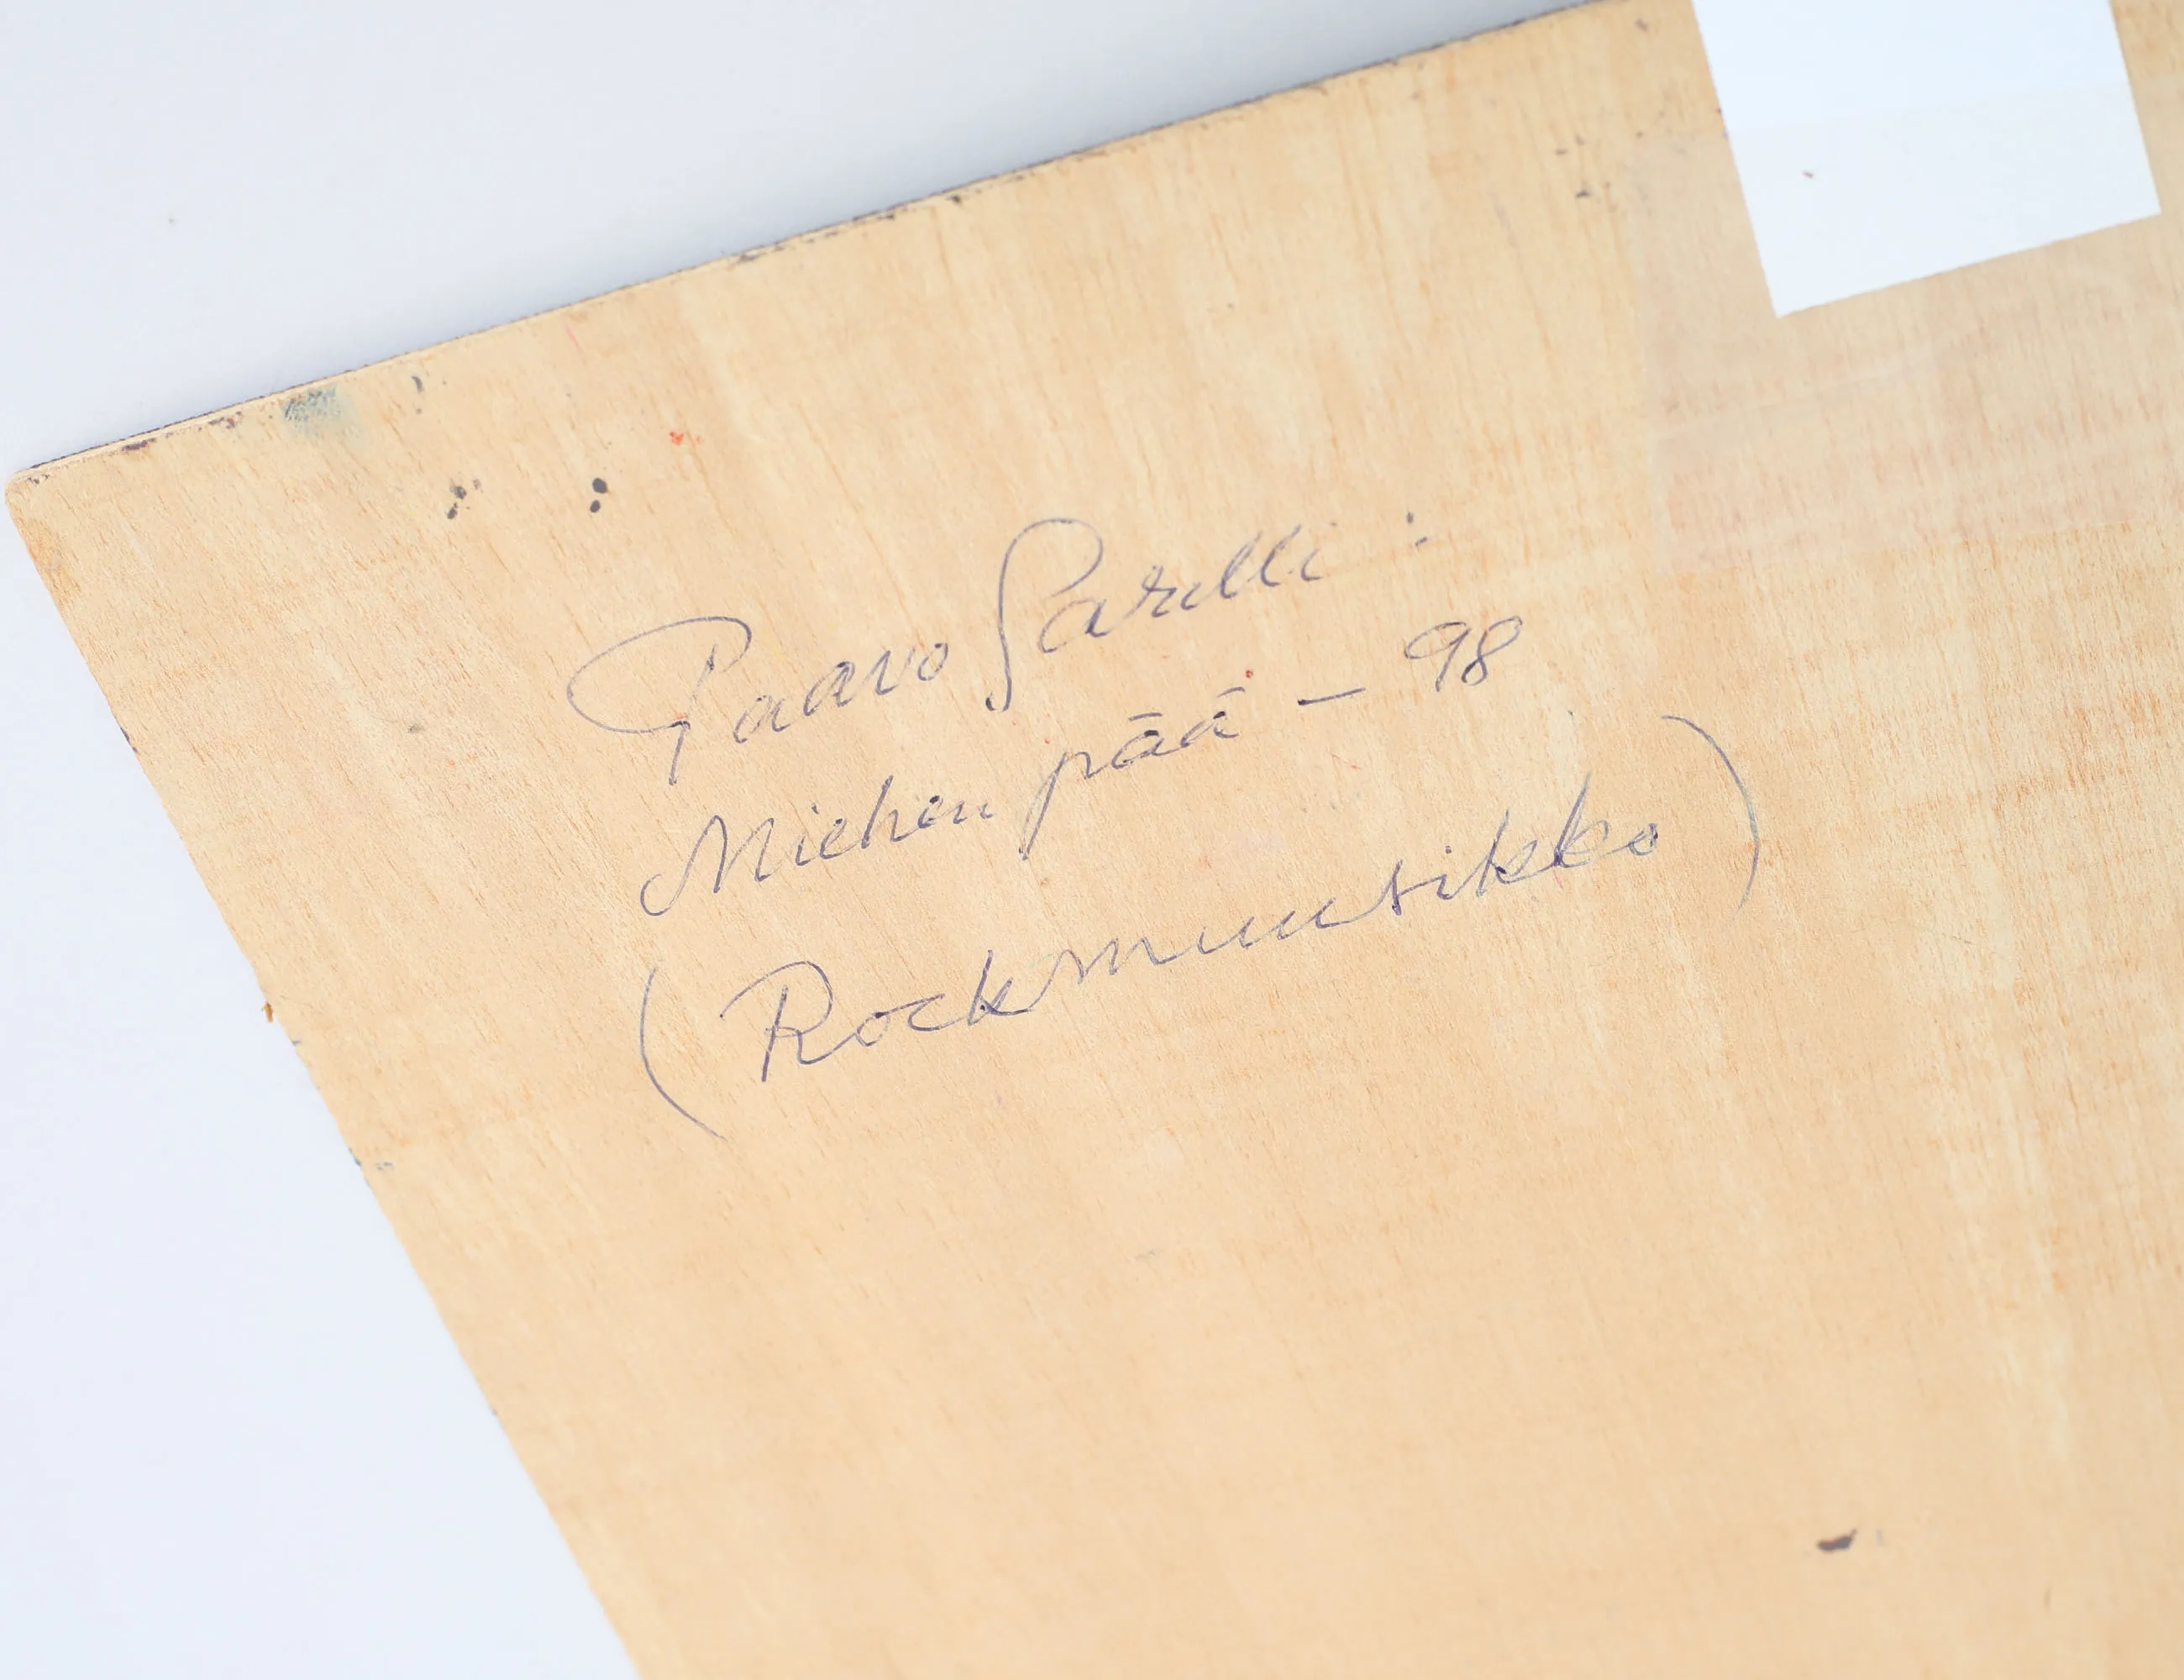 Paavo Sarelli:
Miehen pää - 98
(Rockmuusikko)